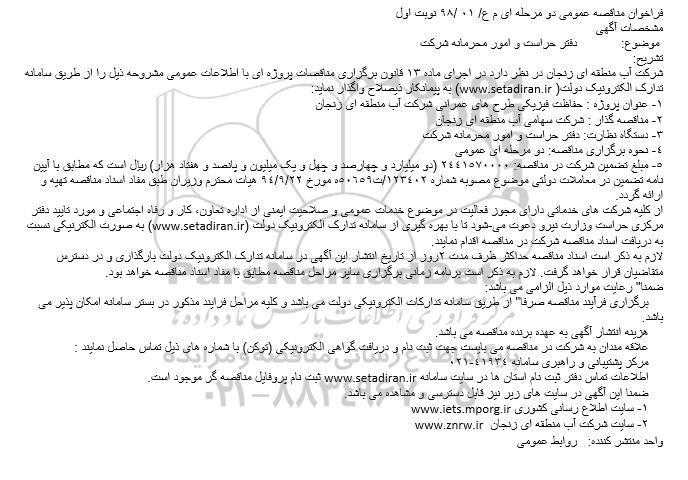 فراخوان مناقصه عمومی دو مرحله ای م ع/ ۰۱ /۹۸ نوبت اول
مشخصات آگهی
موضوع: دفتر حراست و امور محرمانه شرکت
تشریح:
شرکت آب منطقه ای زنجان در نظر دارد در اجرای ماده ۱۳ قانون برگزاری مناقصات پروژه ای با اطلاعات عمومی مشروحه ذیل را از طریق سامانه
تدارک الکترونیک دولت( www.setadiran.ir) به پیمانکار ذیصلاح واگذار نماید:
۱- عنوان پروژه : حفاظت فیزیکی طرح های عمرانی شرکت آب منطقه ای زنجان
۲- مناقصه گذار : شرکت سهامی آب منطقه ای زنجان
۳- دستگاه نظارت: دفتر حراست و امور محرمانه شرکت
۴- نحوه برگزاری مناقصه: دو مرحله ای عمومی
۵- مبلغ تضمین شرکت در مناقصه: ۲۴۴۱۵۷۰۰۰۰ (دو میلیارد و چهارصد و چهل و یک میلیون و پانصد و هفتاد هزار) ریال است که مطابق با آیین
نامه تضمین در معاملات دولتی موضوع مصوبه شماره ۱۲۳۴۰۲/ت۵۰۶۵۹ه مورخ ۹۴/۹/۲۲ هیات محترم وزیران طبق مفاد اسناد مناقصه تهیه و
ارائه گردد.
از کلیه شرکت های خدماتی دارای مجوز فعالیت در موضوع خدمات عمومی و صلاحیت ایمنی از اداره تعاون، کار و رفاه اجتماعی و مورد تایید دفتر
مرکزی حراست وزارت نیرو دعوت می-شود تا با بهره گیری از سامانه تدارک الکترونیک دولت (www.setadiran.ir) به صورت الکترنیکی نسبت
به دریافت اسناد مناقصه شرکت در مناقصه اقدام نمایند.
لازم به ذکر است اسناد مناقصه حداکثر ظرف مدت ۲روز از تاریخ انتشار این آگهی در سامانه تدارک الکترونیک دولت بارگذاری و در دسترس
متقاضیان قرار خواهد گرفت. لازم به ذکر است برنامه زمانی برگزاری سایر مراحل مناقصه مطابق با مفاد اسناد مناقصه خواهد بود.
ضمنا" رعایت موارد ذیل الزامی می باشد:
برگزاری فرآیند مناقصه صرفا" از طریق سامانه تدارکات الکترونیکی دولت می باشد و کلیه مراحل فرایند مذکور در بستر سامانه امکان پذیر می
باشد.
هزینه انتشار آگهی به عهده برنده مناقصه می باشد.
علاقه مندان به شرکت در مناقصه می بایست جهت ثبت نام و دریافت گواهی الکترونیکی (توکن) با شماره های ذیل تماس حاصل نمایند :
مرکز پشتیبانی و راهبری سامانه ۴۱۹۳۴-۰۲۱
اطلاعات تماس دفتر ثبت نام استان ها در سایت سامانه www.setadiran.ir ثبت نام پروفایل مناقصه گر موجود است.
ضمنا این آگهی در سایت های زیر نیز قابل دسترسی و مشاهده می باشد.
۱- سایت اطلاع رسانی کشوری www.iets.mporg.ir
۲- سایت شرکت آب منطقه ای زنجان www.znrw.ir
واحد منتشر کننده: روابط عمومی